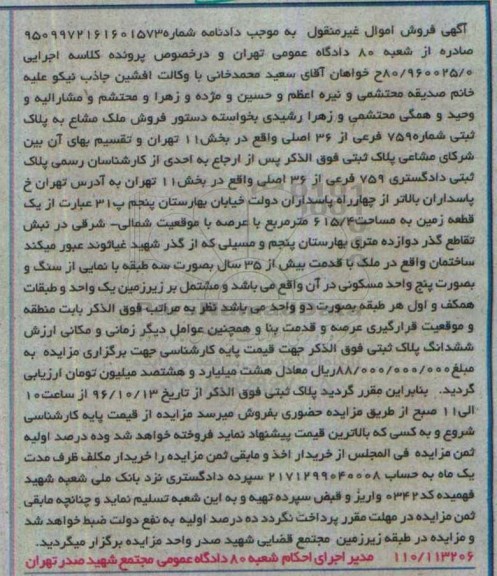 آگهی فروش اموال غیرمنقول به موجب دادنامه شماره۹۵۰۹۹۷۲۱۶۱۶۰۱۵۷۳
صادره از شعبه ۸۰ دادگاه عمومی تهران و درخصوص پرونده کلاسه اجرایی
۸۰/۹۶۰۰۲۵/۰ح خواهان آقای سعید محمدخانی با وکالت افشین جاذب نیکو علیه
خانم صدیقه محتشمی و نیره اعظم و حسین و مژده و زهرا و محتشم و مشارالیه و
وحید و همگی محتشمی و زهرا رشیدی بخواسته دستور فروش ملک مشاع به پلاک
ثبتی شماره۷۵۹ فرعی از ۳۶ اصلی واقع در بخش۱۱ تهران و تقسیم بهای آن بین
شرکای مشاعی پلاک ثبتی فوق الذکر پس از ارجاع به احدی از کارشناسان رسمی پلاک
ثبتی دادگستری ۷۵۹ فرعی از ۳۶ اصلی واقع در بخش۱۱ تهران به آدرس تهران خ
پاسداران بالاتر از چهارراه پاسداران دولت خیابان بهارستان پنجم پ۳۱ عبارت از یک
قطعه زمین به مساحت۶۱۵/۴ مترمربع با عرصه با موقعیت شمالی- شرقی در نبش
تقاطع گذر دوازده متری بهارستان پنجم و مسیلی که از گذر شهید غیاثوند عبور میکند
ساختمان واقع در ملک با قدمت بیش از ۳۵ سال بصورت سه طبقه با نمایی از سنگ و
بصورت پنج واحد مسکونی در آن واقع می باشد و مشتمل بر زیرزمین یک واحد و طبقات
همکف و اول هر طبقه بصورت دو واحد می باشد نظر به مراتب فوق الذکر بابت منطقه
و موقعیت قرارگیری عرصه و قدمت بنا و همچنین عوامل دیگر زمانی و مکانی ارزش
ششدانگ پلاک ثبتی فوق الذکر جهت قیمت پایه کارشناسی جهت برگزاری مزایده به
مبلغ۸۸/۰۰۰/۰۰۰/۰۰۰ریال معادل هشت میلیارد و هشتصد میلیون تومان ارزیابی
گردید. بنابراین مقرر گردید پلاک ثبتی فوق الذکر از تاریخ ۹۶/۱۰/۱۳ از ساعت۱۰
الی۱۱ صبح از طریق مزایده حضوری بفروش میرسد مزایده از قیمت پایه کارشناسی
شروع و به کسی که بالاترین قیمت پیشنهاد نماید فروخته خواهد شد وده درصد اولیه
ثمن مزایده فی المجلس از خریدار اخذ و مابقی ثمن مزایده را خریدار مکلف ظرف مدت
یک ماه به حساب ۲۱۷۱۲۹۹۰۴۰۰۰۸ سپرده دادگستری نزد بانک ملی شعبه شهید
فهمیده کد۰۳۴۲ واریز و قبض سپرده تهیه و به این شعبه تسلیم نماید و چنانچه مابقی
ثمن مزایده در مهلت مقرر پرداخت نگردد ده درصد اولیه به نفع دولت ضبط خواهد شد
و مزایده در طبقه زیرزمین مجتمع قضایی شهید صدر واحد مزایده برگزار میگردید.
۱۱۰/۱۱۳۲۰۶ مدیر اجرای احکام شعبه ۸۰ دادگاه عمومی مجتمع شهید صدر تهران